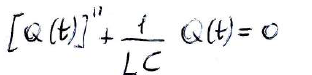 [Q(t)]'' + 1/LC Q(t) = 0